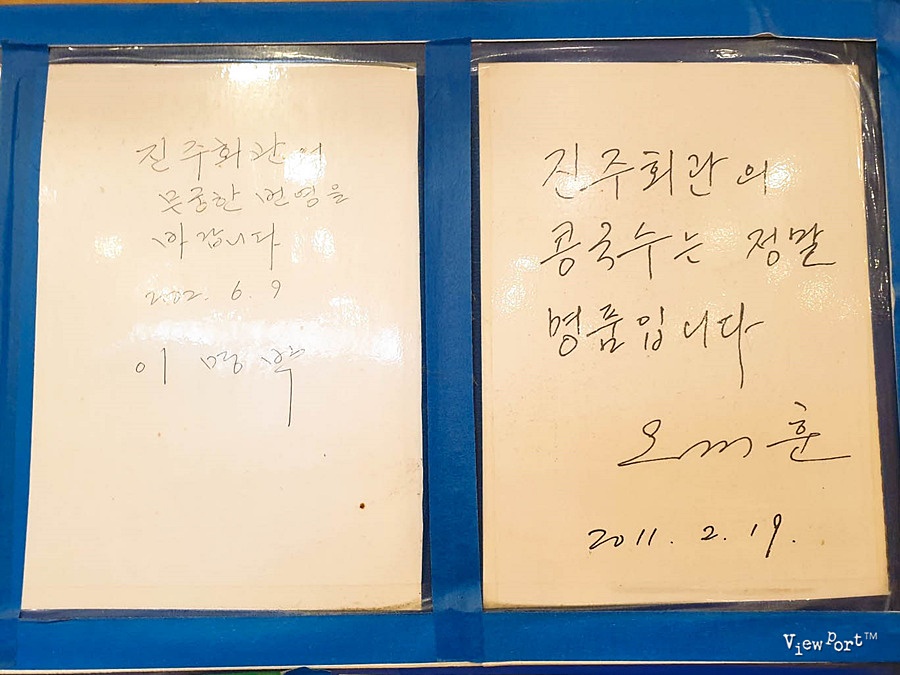 진주회관의
무궁한 번영을
바랍니다
2002. 6. 9
이명박
진주회관의
콩국수는 정말
명품입니다
오세훈
2011. 2. 19.
ViewPort™